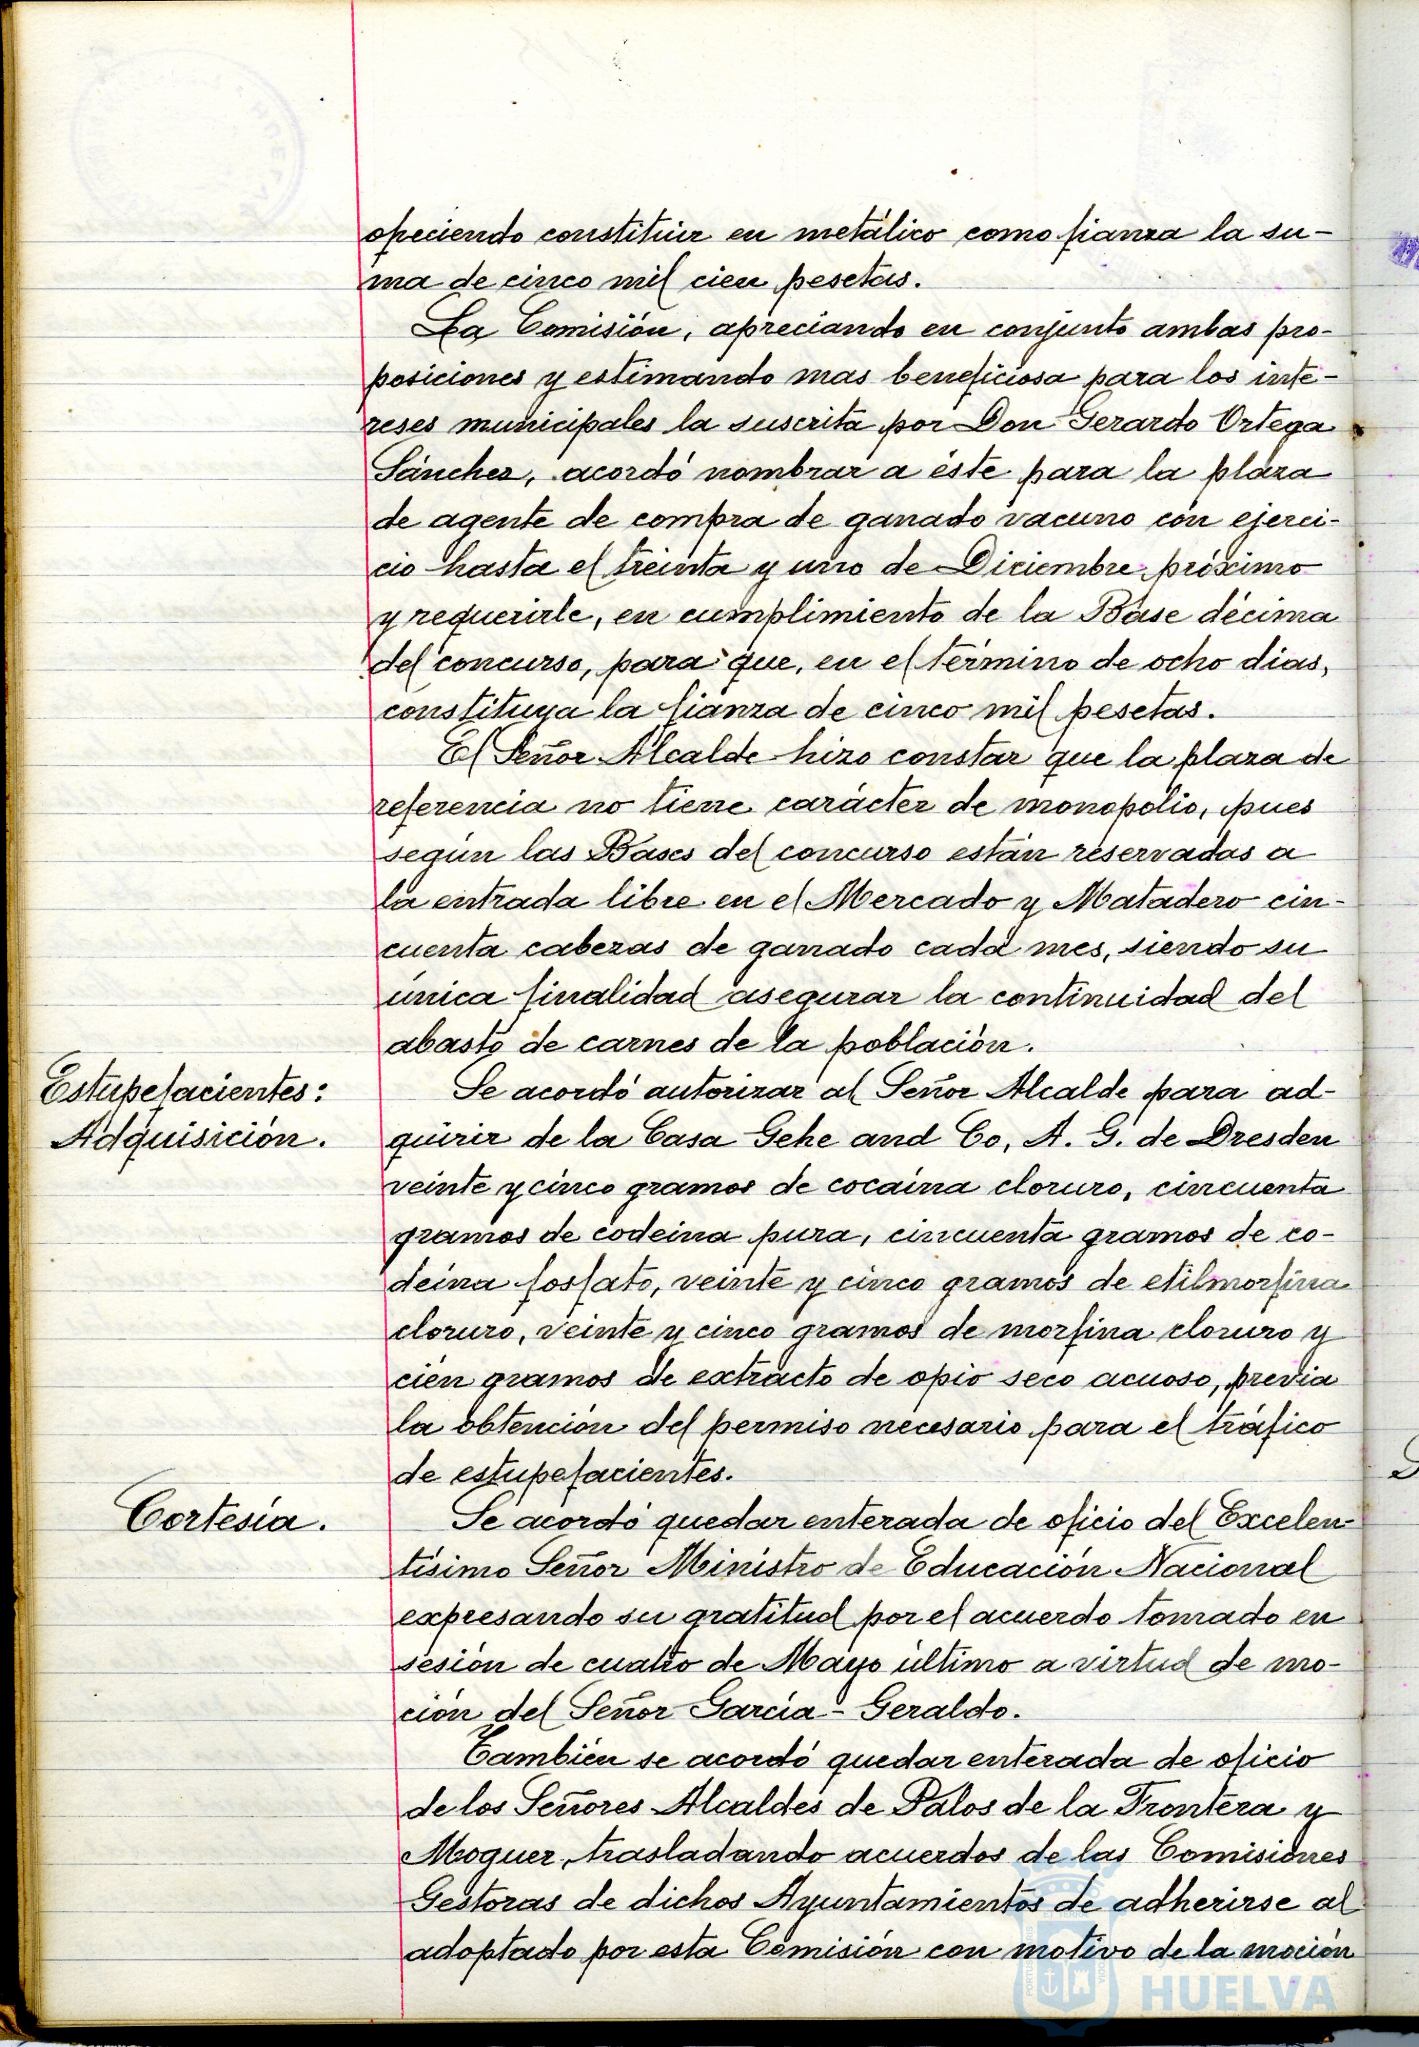 ofreciendo constituir en metálico como fianza la su-
ma de cinco mil cien pesetas.
La Comisión, apreciando en conjunto ambas pro-
posiciones y estimando mas beneficiosa para los inte-
reses municipales la suscrita por Don Gerardo Ortega
Sánchez, acordó nombrar a éste para la plaza
de agente de compra de ganado vacuno con ejerci-
cio hasta el treinta y uno de Diciembre próximo
y requerirle, en cumplimiento de la Base décima
del concurso, para que, en el término de ocho dias,
constituya la fianza de cinco mil pesetas.
El Señor Alcalde hizo constar que la plaza de
referencia no tiene carácter de monopolio, pues
según las Bases del concurso están reservadas a
la entrada libre en el Mercado y Matadero cin-
cuenta cabezas de ganado cada mes, siendo su
única finalidad asegurar la continuidad del
abasto de carnes de la población.
Estupefacientes:
Adquisición.
Se acordó autorizar al Señor Alcalde para ad-
quirir de la Casa Gehe and Co, A. G. de Dresden
veinte y cinco gramos de cocaína cloruro, cincuenta
gramos de codeina pura, cincuenta gramos de co-
deína fosfato, veinte y cinco gramos de etilmorfina
cloruro, veinte y cinco gramos de morfina cloruro y
cien gramos de extracto de opio seco acuoso, previa
la obtención del permiso necesario para el tráfico
de estupefacientes.
Cortesía.
Se acordó quedar enterada de oficio del Excelen-
tísimo Señor Ministro de Educación Nacional
expresando su gratitud por el acuerdo tomado en
sesión de cuatro de Mayo último a virtud de mo-
ción del Señor García-Geraldo.
También se acordó quedar enterada de oficio
de los Señores Alcaldes de Palos de la Frontera y
Moguer, trasladando acuerdos de las Comisiones
Gestoras de dichos Ayuntamientos de adherirse al
adoptado por esta Comisión con motivo de la moción
HUELVA